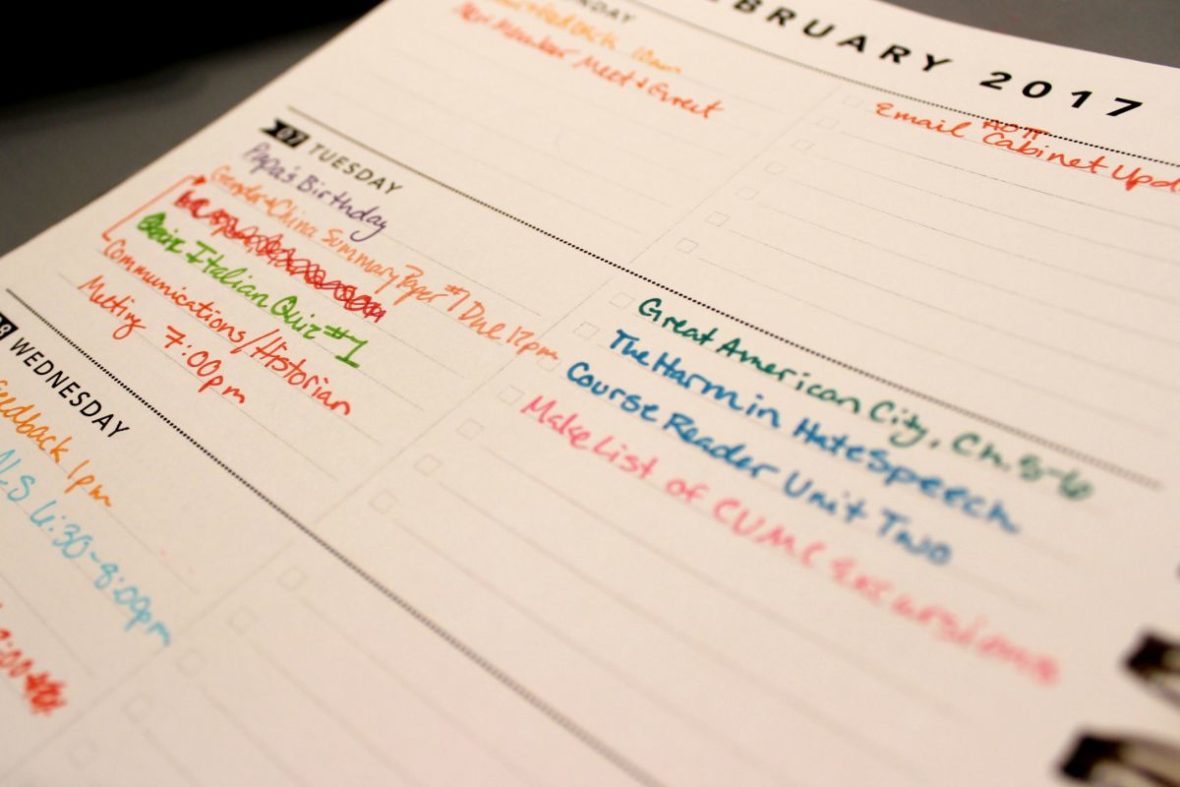 FEBRUARY 2017
MONDAY
10am
New Member Meet + Greet
Email ADTT Cabinet Upd
07 TUESDAY
Papa's Birthday
Gender + China Summary Paper #1 Due 12pm
Italian Quiz #1
Communications/Historian
Meeting 7:00pm
Great American City, Ch. 5-6
The Harm in Hate Speech
Course Reader Unit Two
Make List of CUMC Excursions
08 WEDNESDAY
Feedback 1pm
N.S 6:30-8:00pm
:00